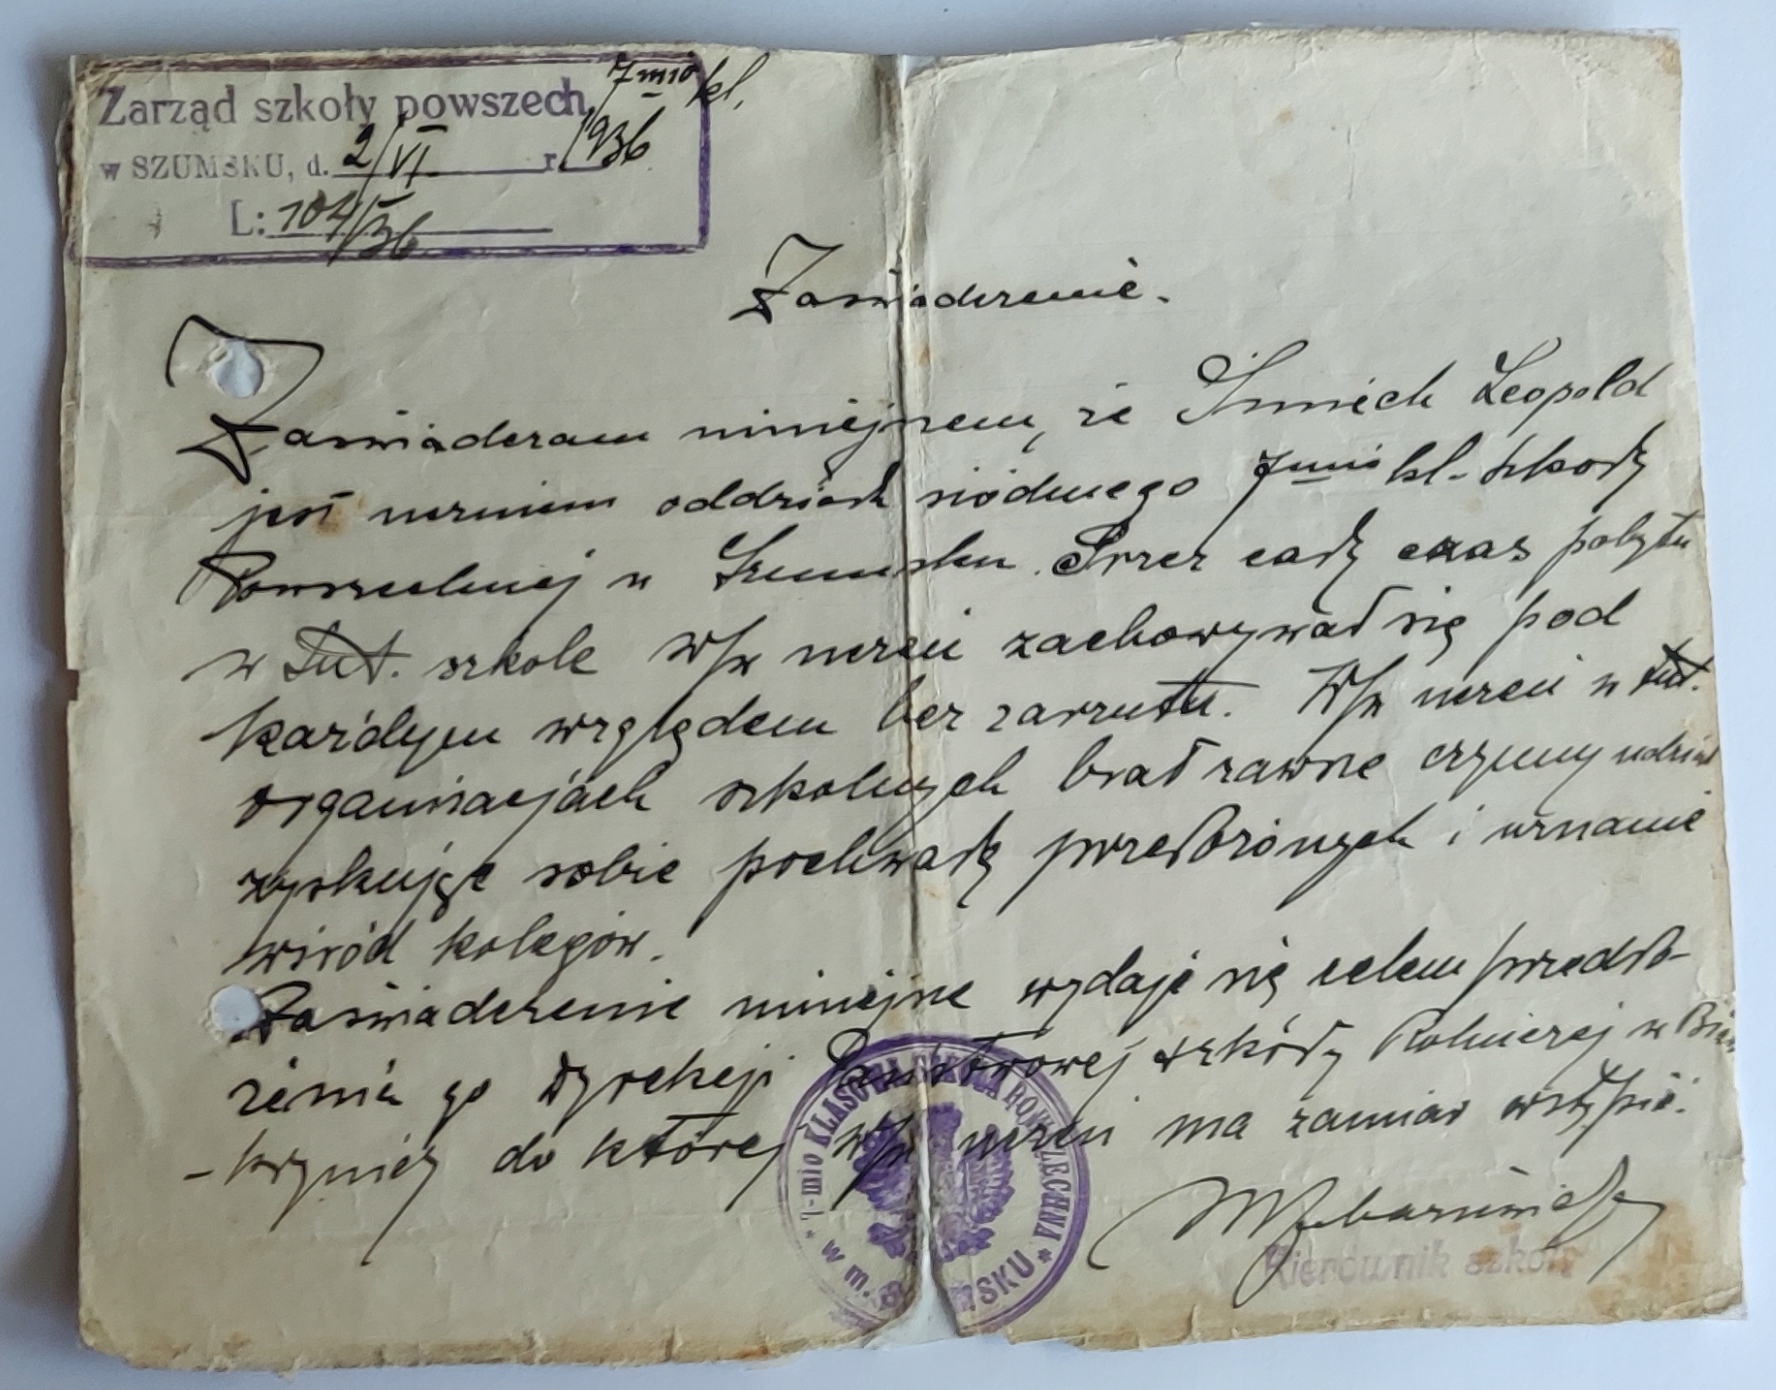 Zarząd szkoły powszech. 7mio kl.
w SZUMSKU, d. 2/VI r. 1936
L: 104/36
Zaświadczenie.
Zaświadczam niniejszem, że Śmiech Leopold
jest uczniem oddziału siódmego 7mio kl. szkoły
Powszechnej w Szumsku. Przez cały czas pobytu
w tut. szkole w/w uczeń zachowywał się pod
każdym względem bez zarzutu. W/w uczeń w tut.
organizacjach szkolnych brał zawsze czynny udział
zyskując sobie pochwały przełożonych i uznanie
wśród kolegów.
Zaświadczenie niniejsze wydaje się celem przedło-
żenia go Dyrekcji Państwowej szkoły Rolniczej w
do której w/w uczeń ma zamiar wstąpić.
7-mio KLASOWA SZKOŁA POWSZECHNA
* w m. SZUMSKU *
Kierownik szkoły